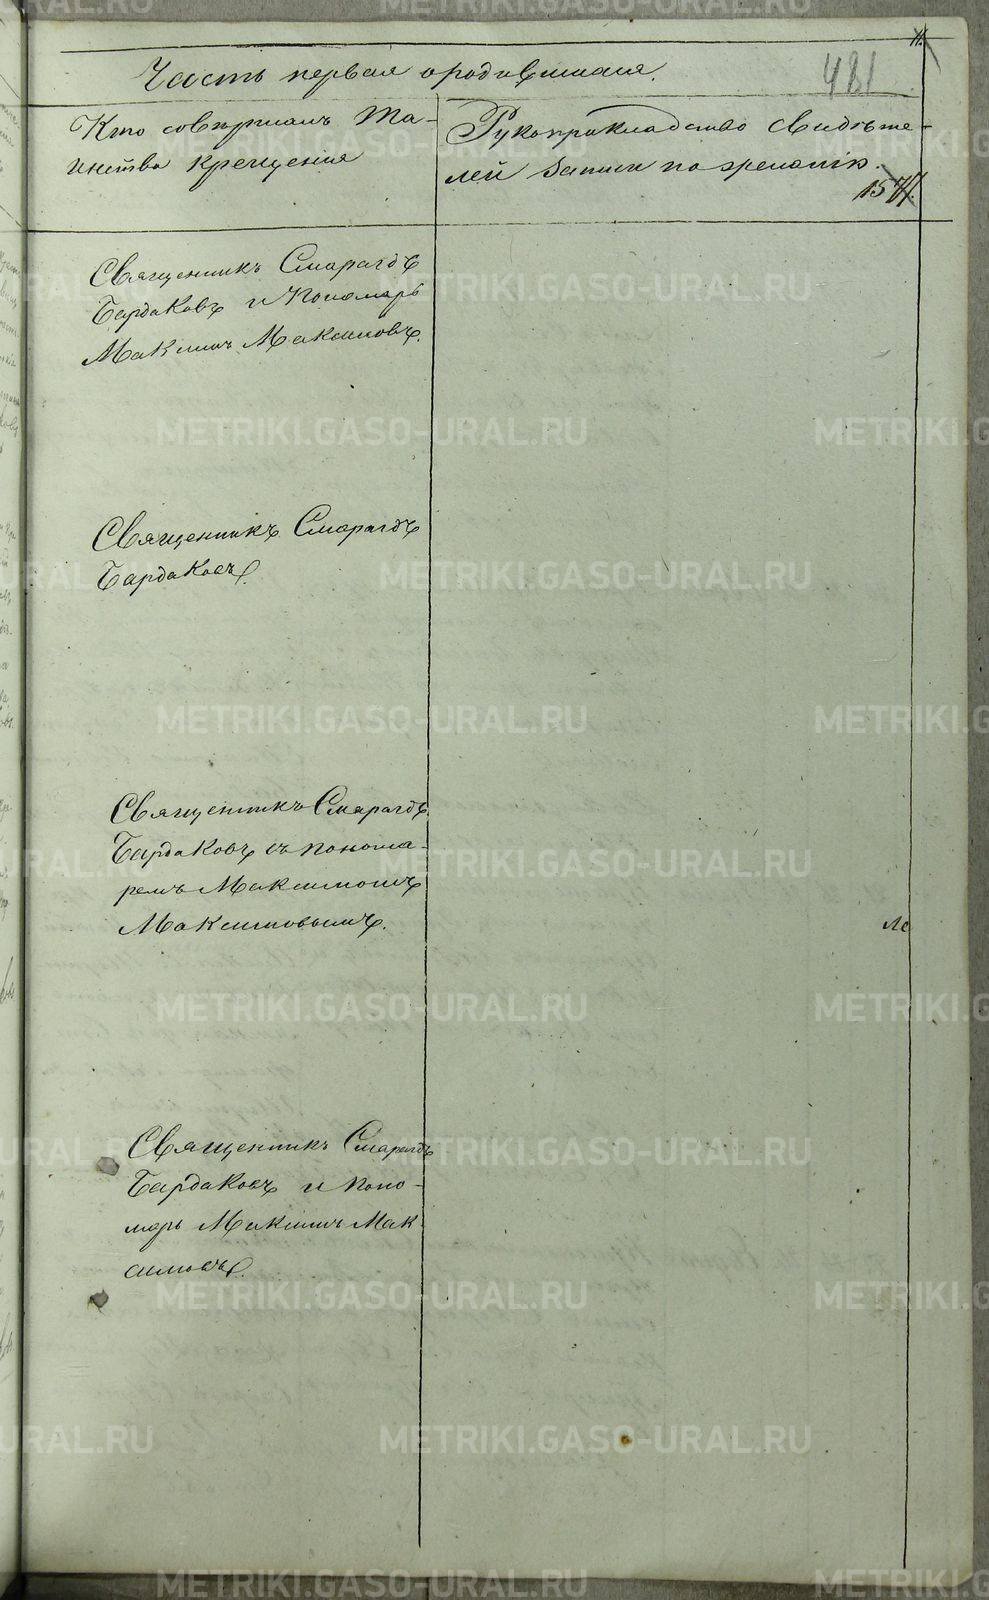 11.
Часть первая о родившихся.
481
Кто совершалъ Та-
инство крещенія
Рукоприкладство Свидѣте-
лей записи по желанію.
Священникъ Смарагдъ
Бардаковъ и Пономарь
Максимъ Максимовъ.
Священникъ Смарагдъ
Бардаковъ.
Священникъ Смарагдъ
Бардаковъ съ понома-
ремъ Максимомъ
Максимовымъ.
Священникъ Смарагдъ
Бардаковъ и Поно-
марь Максимъ Мак-
симовъ.
METRIKI.GASO-URAL.RU